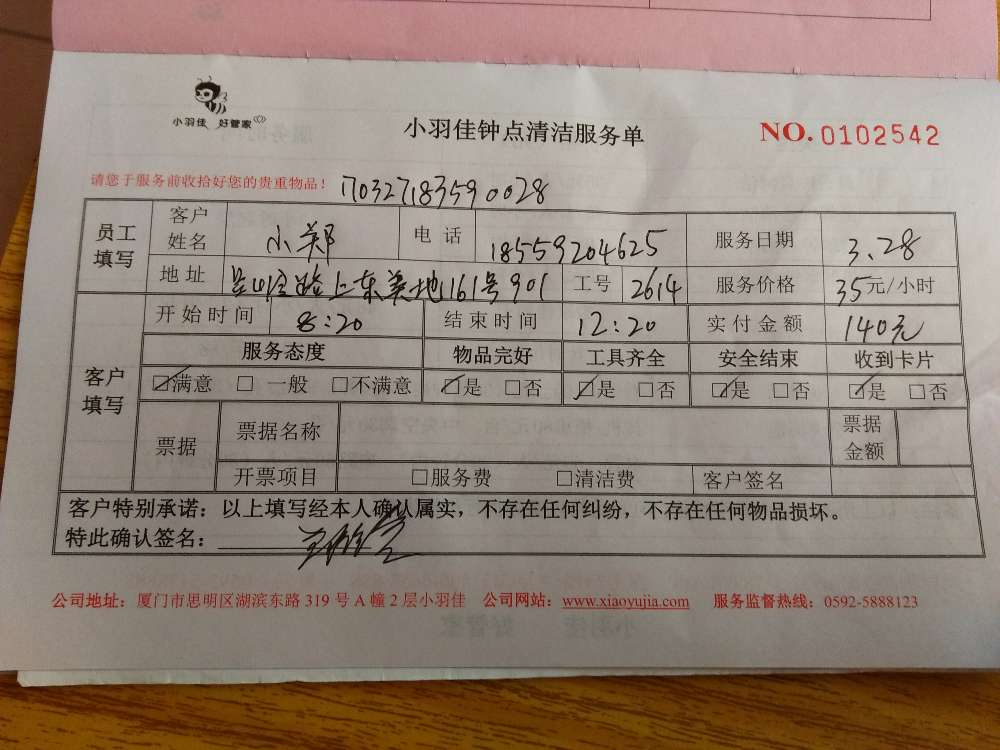 小羽佳 好管家
小羽佳钟点清洁服务单
NO. 0102542
请您于服务前收拾好您的贵重物品! 17032718359 0028
员工填写 客户姓名 小郑 电话 18559204625 服务日期 3.28
地址 路上东美地161号901 工号 2614 服务价格 35元/小时
客户填写 开始时间 8:20 结束时间 12:20 实付金额 140元
服务态度 物品完好 工具齐全 安全结束 收到卡片
☑满意 □一般 □不满意 ☑是 □否 ☑是 □否 ☑是 □否 ☑是 □否
票据 票据名称 票据金额
开票项目 □服务费 □清洁费 客户签名
客户特别承诺:以上填写经本人确认属实,不存在任何纠纷,不存在任何物品损坏。
特此确认签名:
公司地址:厦门市思明区湖滨东路 319 号 A 幢 2 层小羽佳 公司网站:www.xiaoyujia.com 服务监督热线:0592-5888123